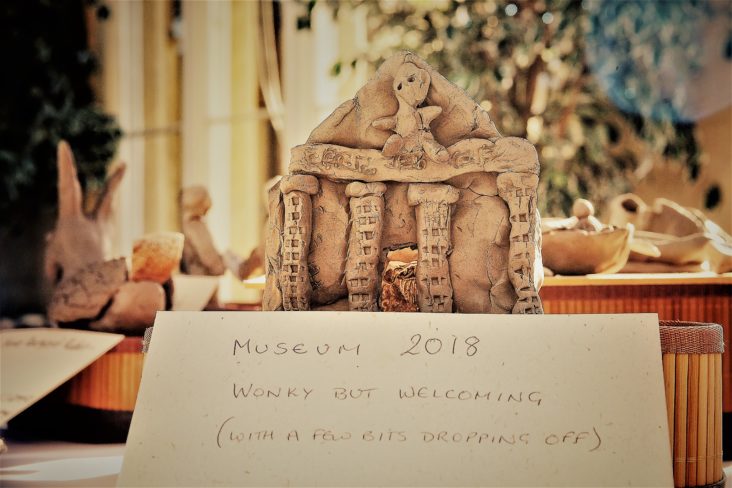 MUSEUM 2018
WONKY BUT WELCOMING
(WITH A FEW BITS DROPPING OFF)